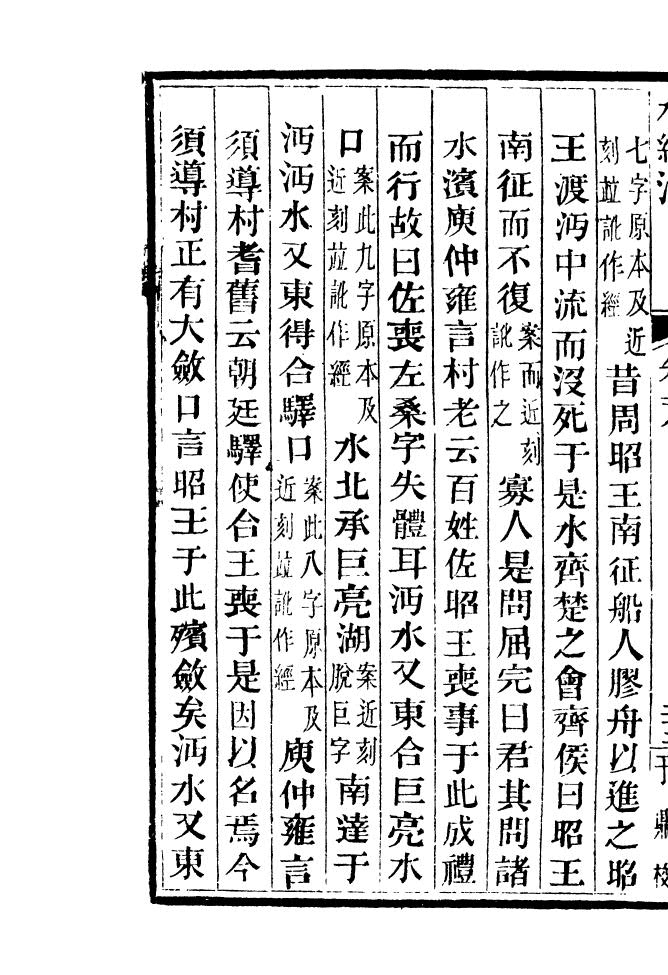 七字原本及近刻竝訛作經昔周昭王南征船人膠舟以進之昭
王渡沔中流而沒死于是水齊楚之會齊侯曰昭王
南征而不復案而近刻訛作之寡人是問屈完曰君其問諸
水濱庾仲雍言村老云百姓佐昭王喪事于此成禮
而行故曰佐喪左桑字失體耳沔水又東合巨亮水
口案此九字原本及近刻竝訛作經水北承巨亮湖案近刻脫巨字南達于
沔沔水又東得合驛口案此八字原本及近刻竝訛作經庾仲雍言
須導村耆舊云朝廷驛使合王喪于是因以名焉今
須導村正有大斂口言昭王于此殯斂矣沔水又東